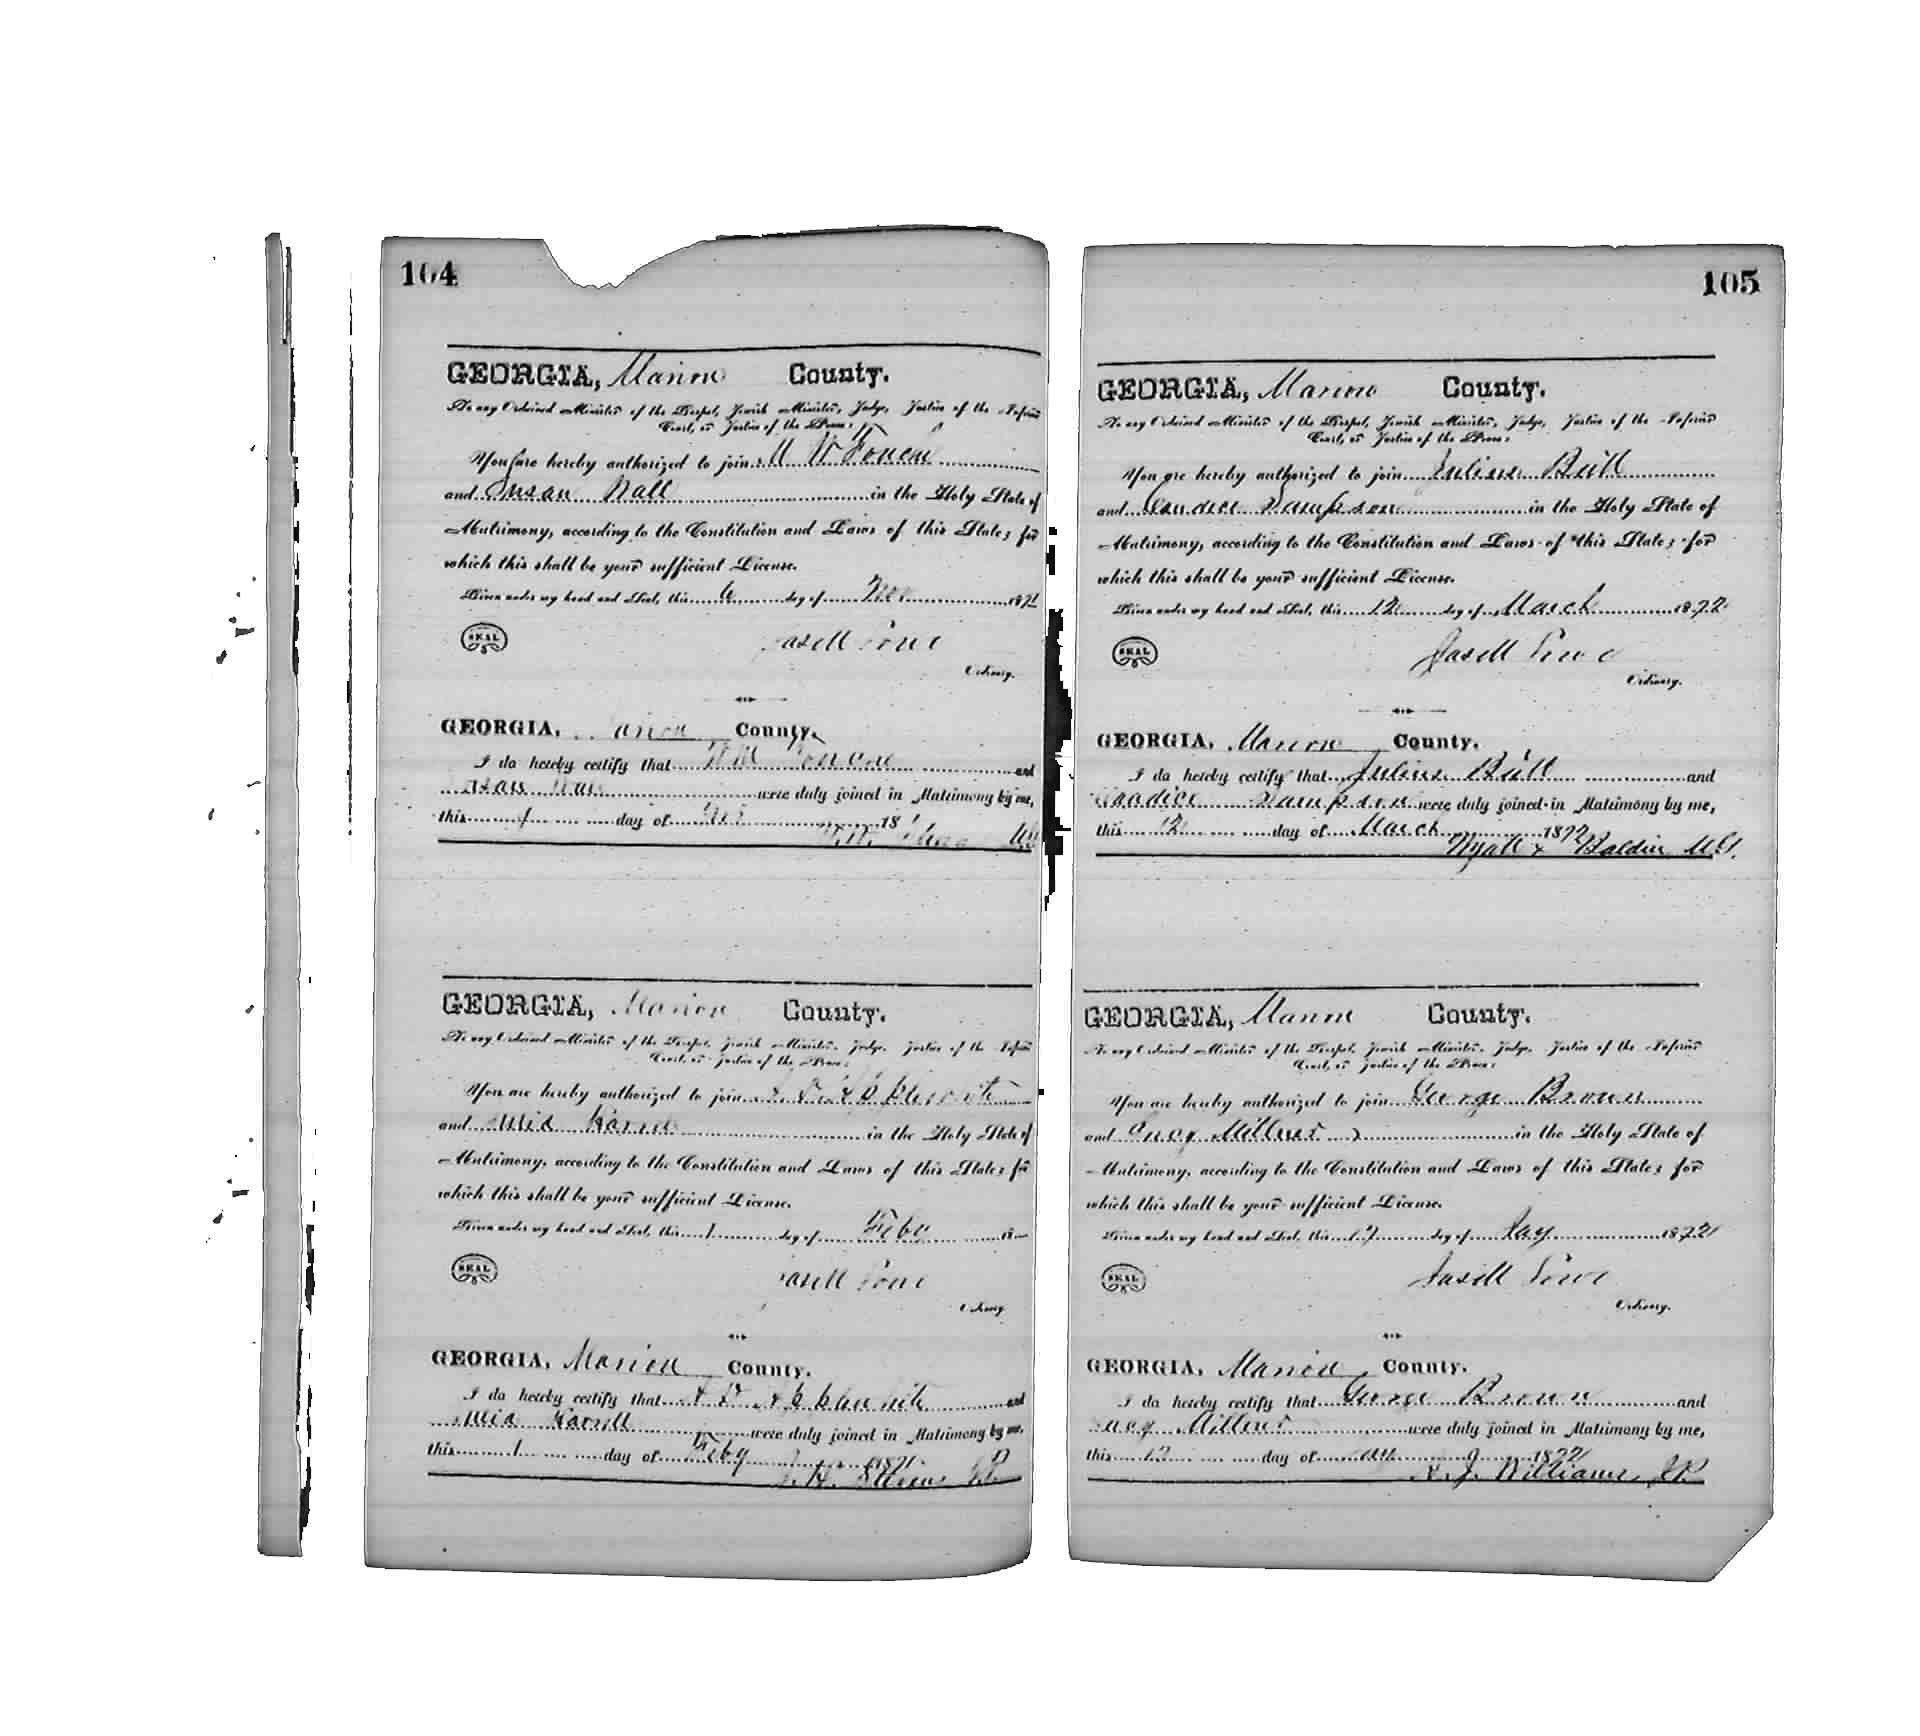 104
GEORGIA, Marion County.
To any Ordained Minister of the Gospel, Jewish Minister, Judge, Justice of the Inferior
Court, or Justice of the Peace:
You are hereby authorized to join M W
and Susan Wall in the Holy State of
Matrimony, according to the Constitution and Laws of this State; for
which this shall be your sufficient License.
Given under my hand and Seal, this 6 day of Nov 1871
SEAL
Lowe
Ordinary.
GEORGIA, Marion County.
I do hereby certify that and
were duly joined in Matrimony by me,
this day of Nov 18
GEORGIA, Marion County.
To any Ordained Minister of the Gospel, Jewish Minister, Judge, Justice of the Inferior
Court, or Justice of the Peace:
You are hereby authorized to join
and in the Holy State of
Matrimony, according to the Constitution and Laws of this State; for
which this shall be your sufficient License.
Given under my hand and Seal, this 1 day of Feby 18
SEAL
Lowe
Ordinary.
GEORGIA, Marion County.
I do hereby certify that and
were duly joined in Matrimony by me,
this 1 day of Feby 1871
J. H. J.P.
105
GEORGIA, Marion County.
To any Ordained Minister of the Gospel, Jewish Minister, Judge, Justice of the Inferior
Court, or Justice of the Peace:
You are hereby authorized to join Julius Bull
and Sampson in the Holy State of
Matrimony, according to the Constitution and Laws of this State; for
which this shall be your sufficient License.
Given under my hand and Seal, this 12 day of March 1872
SEAL
Jas M Lowe
Ordinary.
GEORGIA, Marion County.
I do hereby certify that Julius Bull and
Sampson were duly joined in Matrimony by me,
this 12 day of March 1872
Wyatt x M.G.
GEORGIA, Marion County.
To any Ordained Minister of the Gospel, Jewish Minister, Judge, Justice of the Inferior
Court, or Justice of the Peace:
You are hereby authorized to join George Brown
and Lucy Millner in the Holy State of
Matrimony, according to the Constitution and Laws of this State; for
which this shall be your sufficient License.
Given under my hand and Seal, this day of 1872
SEAL
Jas M Lowe
Ordinary.
GEORGIA, Marion County.
I do hereby certify that George Brown and
Lucy Millner were duly joined in Matrimony by me,
this day of 1872
J. Williams, JP